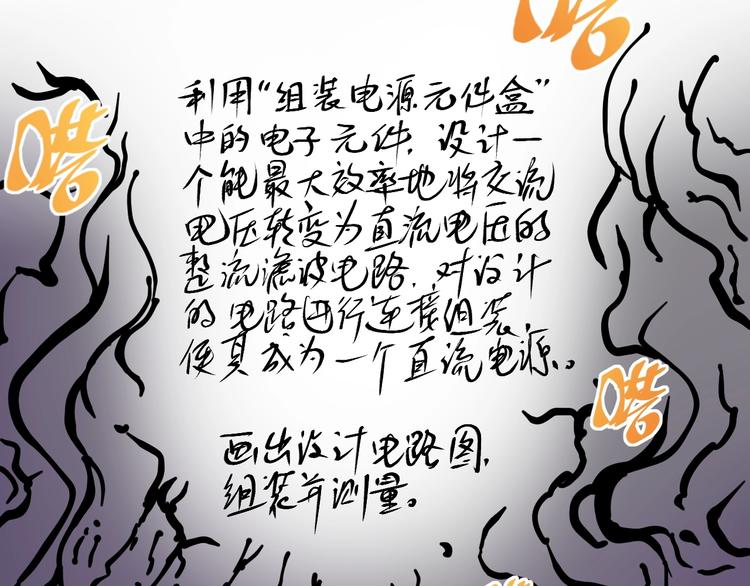 嗒
嗒
利用“组装电源元件盒”
中的电子元件，设计一
个能最大效率地将交流
电压转变为直流电压的
整流滤波电路，对设计
的电路进行连接组装，
使其成为一个直流电源。
嗒
画出设计电路图，
组装并测量。